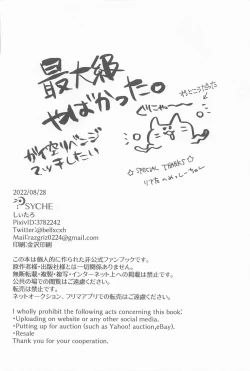 最大級
やばかった。
ガイ空リベンジ
マッチしたい
ぐりにゃ〜
☆ SPECIAL THANKS ☆
2022/08/28
SYCHE
しいたろ
PixivID:3782242
Mail:razgriz0224@gmail.com
印刷:金沢印刷
この本は個人的に作られた非公式ファンブックです。
原作者様・出版社様とは一切関係ありません。
無断転載・複製・複写・インターネット上への掲載は禁止です。
公共の場での閲覧はご遠慮ください。
転売は禁止です。
ネットオークション、フリマアプリでの転売はご遠慮ください。
I wholly prohibit the following acts concerning this book:
・Uploading on website or any other social media.
・Putting up for auction (such as Yahoo! auction,eBay).
・Resale
Thank you for your cooperation.